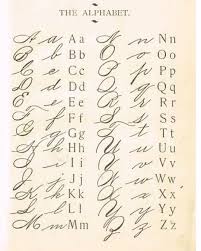 THE ALPHABET.
A a Aa N n Nn
B b Bb O o Oo
C c Cc P p Pp
D d Dd Q q Qq
E e Ee R r Rr
F f Ff S s Ss
G g Gg T t Tt
H h Hh U u Uu
I i Ii V v Vv
J j Jj W w Ww
K k Kk X x Xx
L l Ll Y y Yy
M m Mm Z z Zz